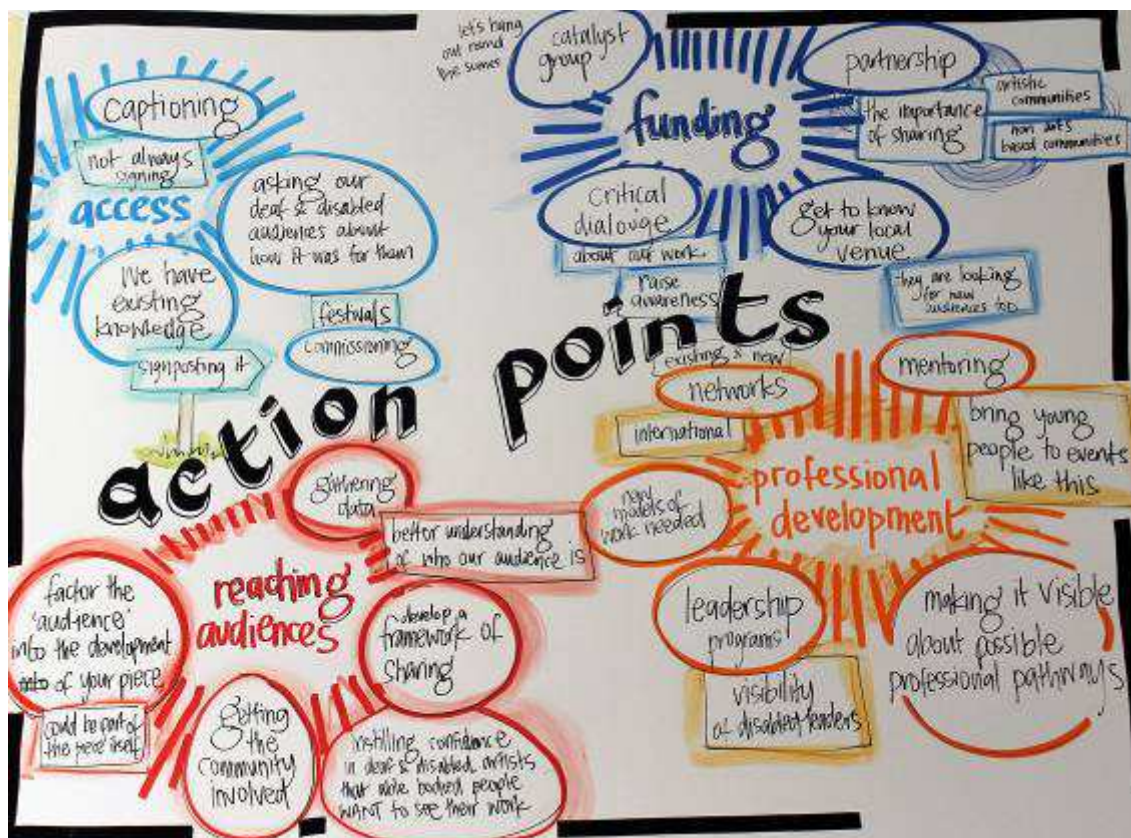 captioning
not always
signing
access
asking our
deaf & disabled
audiences about
how it was for them
We have
existing
knowledge
signposting it
festivals
commissioning
let's hang
out round
catalyst
group
funding
partnership
the importance
of sharing
artistic
communities
non arts
based communities
critical
dialouge
about our work
raise
awareness
get to know
your local
venue
they are looking
for new
audiences too
action points
existing & new
networks
international
mentoring
bring young
people to events
like this
professional
development
new
models of
work needed
leadership
programs
visibility
of disabled leaders
making it visible
about possible
professional pathways
gathering
data
better understanding
of who our audience is
reaching
audiences
factor the
'audience'
into the development
of your piece
could be part of
the piece itself
develop a
framework of
sharing
getting
the
community
involved
instilling confidence
in deaf & disabled artists
that able bodied people
WANT to see their work